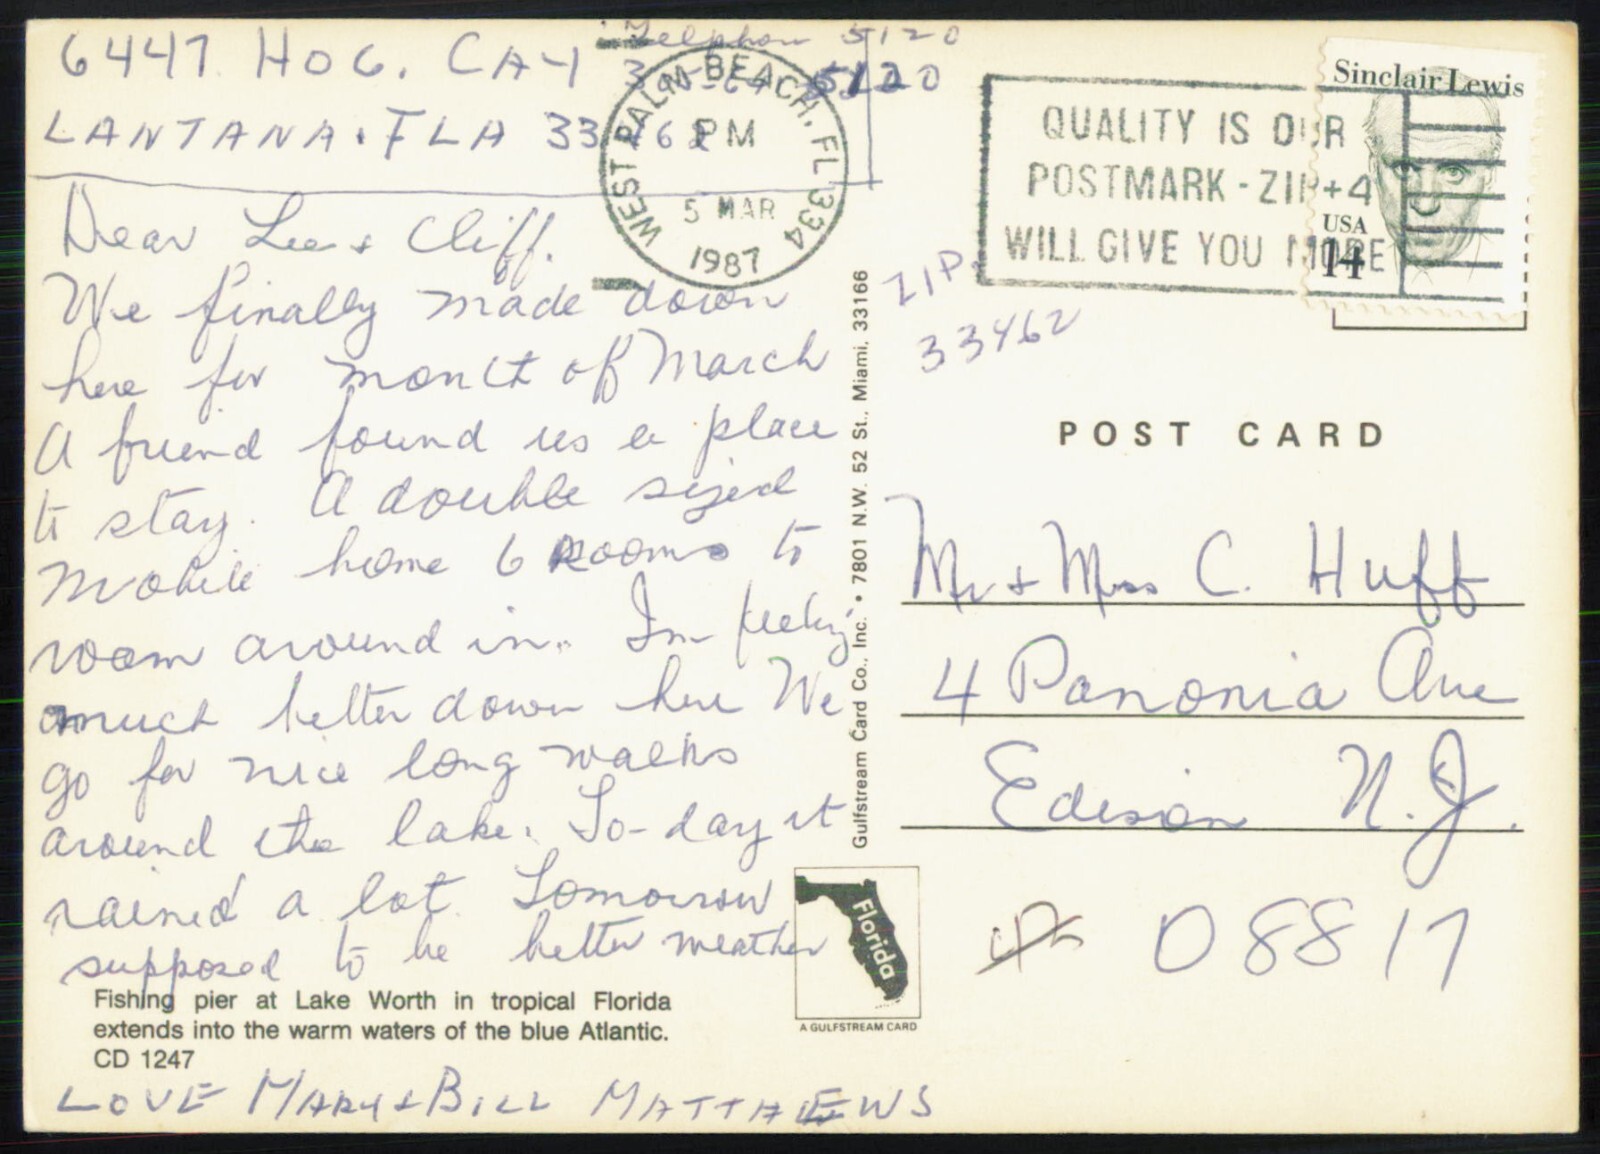 6447 HOG. CAY
Telephon 5120
5120
LANTANA. FLA 33462
WEST PALM BEACH, FL 334
PM
5 MAR
1987
QUALITY IS OUR
POSTMARK - ZIP+4
WILL GIVE YOU MORE
Sinclair Lewis
USA
14
ZIP.
33462
Dear Lee & Cliff.
We finally made down
here for month of March
A friend found us a place
to stay. A double sized
Mobile home 6 Rooms to
room around in. Im feeling
much better down here We
go for nice long walks
around the lake. To-day it
rained a lot. Tomorrow
supposed to be better weather
LOVE MARY & BILL MATTHEWS
Fishing pier at Lake Worth in tropical Florida
extends into the warm waters of the blue Atlantic.
CD 1247
Gulfstream Card Co., Inc. • 7801 N.W. 52 St., Miami, 33166
Florida
A GULFSTREAM CARD
POST CARD
Mr & Mrs C. Huff
4 Panonia Ave
Edison N.J.
08817